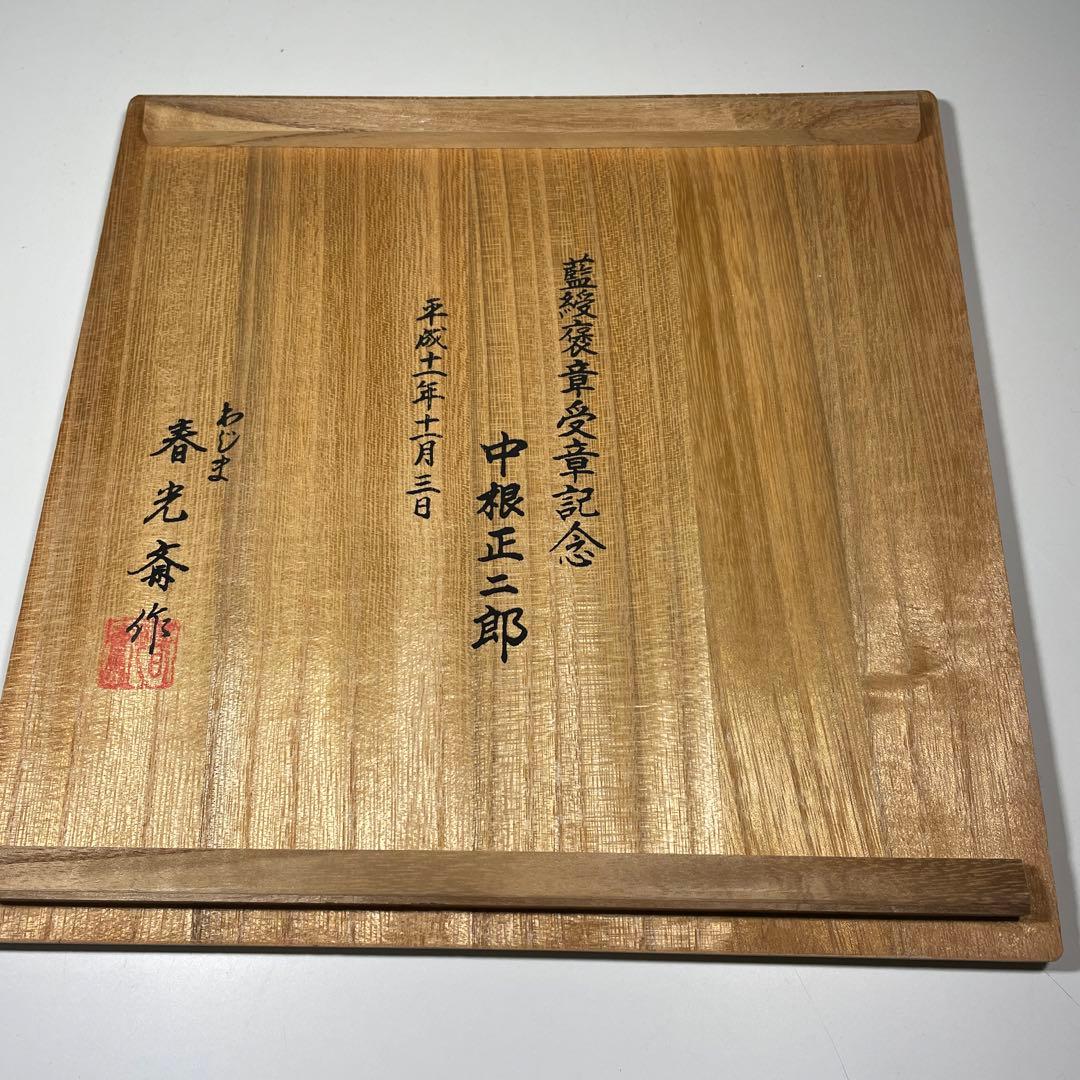 藍綬褒章受章記念
中根正二郎
平成十一年十一月三日
わじま
春光斎作